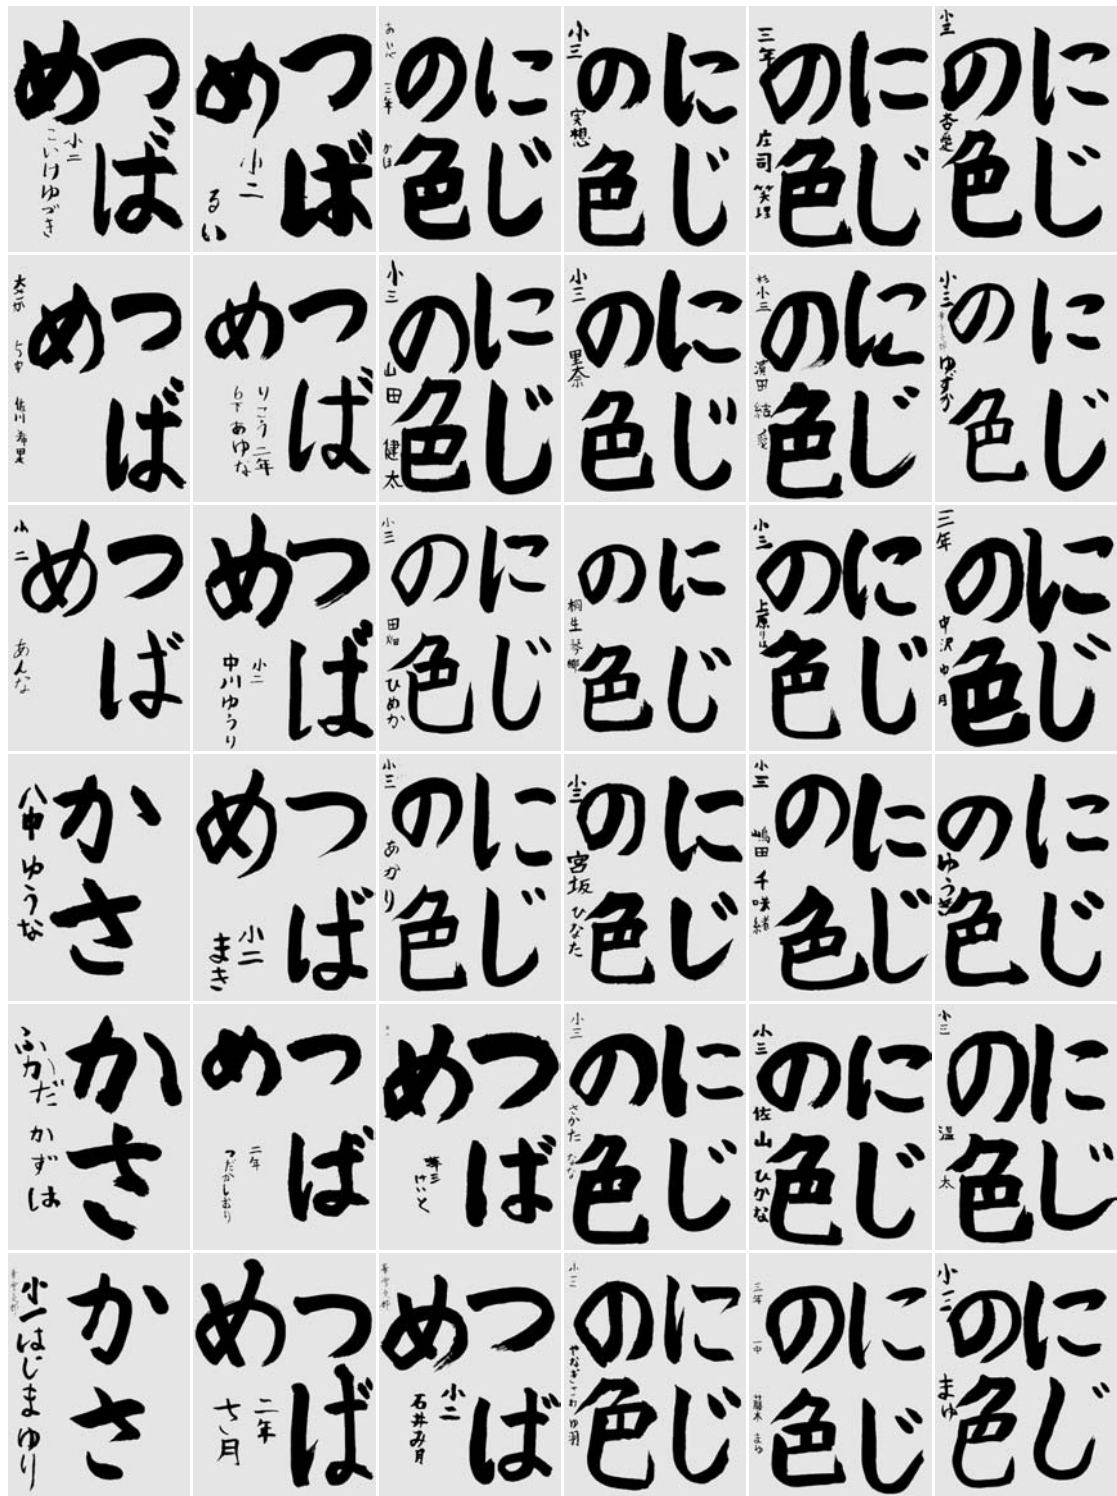 つば
め
小二
こいけゆづき
つば
め
小二
るい
にじ
の色
三年
にじ
の色
小三
実想
にじ
の色
三年
庄司 笑理
にじ
の色
小三
杏
つば
め
佐川 希
つば
め
りこう二年
あゆな
にじ
の色
小三 山田 健太
にじ
の色
小三 里奈
にじ
の色
小三 濱田 結愛
にじ
の色
小三
つば
め
小二 あんな
つば
め
小二
中川ゆうり
にじ
の色
小三 田畑 ひめか
にじ
の色
桐生 琴郷
にじ
の色
小三 上原りほ
にじ
の色
三年 中沢 ゆ月
かさ
八中 ゆうな
つば
め
小二
まき
にじ
の色
小三 あかり
にじ
の色
小三 宮坂 ひなた
にじ
の色
小三 嶋田 千咲緒
にじ
の色
ゆうき
かさ
ふかだ かずは
つば
め
二年
つだかしおり
つば
め
けいと
にじ
の色
小三 さかた なな
にじ
の色
小三 佐山 ひかな
にじ
の色
小三 温太
かさ
小一 はじまゆり
つば
め
二年
七月
つば
め
小二
石井み月
にじ
の色
小三 やなぎさわ ゆ羽
にじ
の色
三年 一中 藤木 まゆ
にじ
の色
まゆ